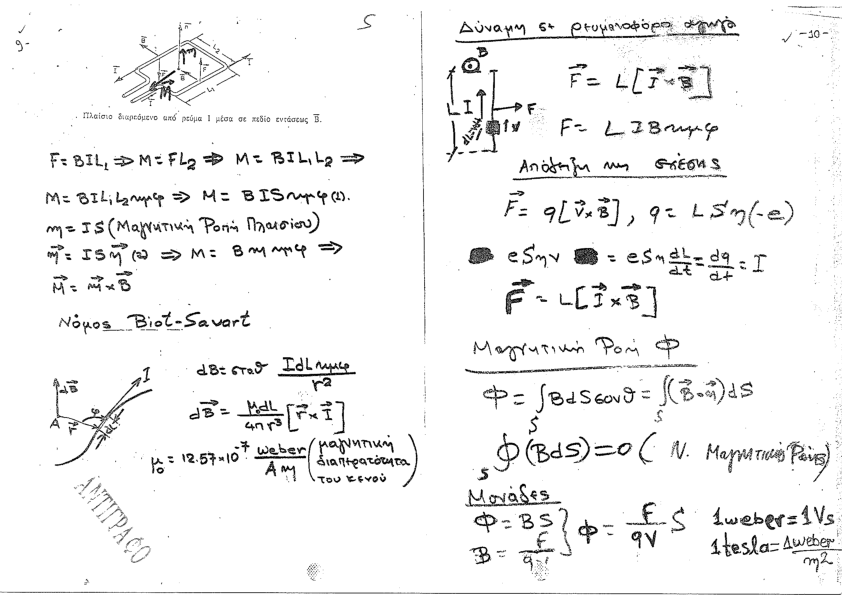 9-
S
Πλαίσιο διαρεόμενο από ρεύμα I μέσα σε πεδίο εντάσεως B̄.
F = BIL₁ ⇒ M = FL₂ ⇒ M = BIL₁L₂ ⇒
M = BIL₁L₂ημφ ⇒ M = BISημφ (1).
m = IS (Μαγνητική Ροπή Πλαισίου)
m⃗ = ISη⃗ (2) ⇒ M = Bmημφ ⇒
M⃗ = m⃗ × B⃗
Νόμος Biot-Savart
dB⃗
I
A
r⃗
φ
dB = σταθ IdLημφ / r²
dB⃗ = μ₀dL / 4πr³ [r⃗ × I⃗]
μ₀ = 12.57×10⁻⁷ weber / A m (μαγνητική διαπερατότητα του κενού)
ΑΝΤΙΓΡΑΦΟ
-10-
Δύναμη σε ρευματοφόρο αγωγό
B
L I
F
v
F⃗ = L[I⃗ × B⃗]
F = LIBημφ
Απόδειξη της σχέσης
F⃗ = q[v⃗ × B⃗], q = LSη(-e)
eSηv = eSη dL/dt = dq/dt = I
F⃗ = L[I⃗ × B⃗]
Μαγνητική Ροή Φ
Φ = ∫S BdSσυνθ = ∫S (B⃗·η⃗)dS
∮S (BdS) = 0 ( Ν. Μαγνητικής Ροής)
Μονάδες
Φ = BS
B = F / qv } Φ = F / qV S
1weber = 1Vs
1tesla = 1weber / m²